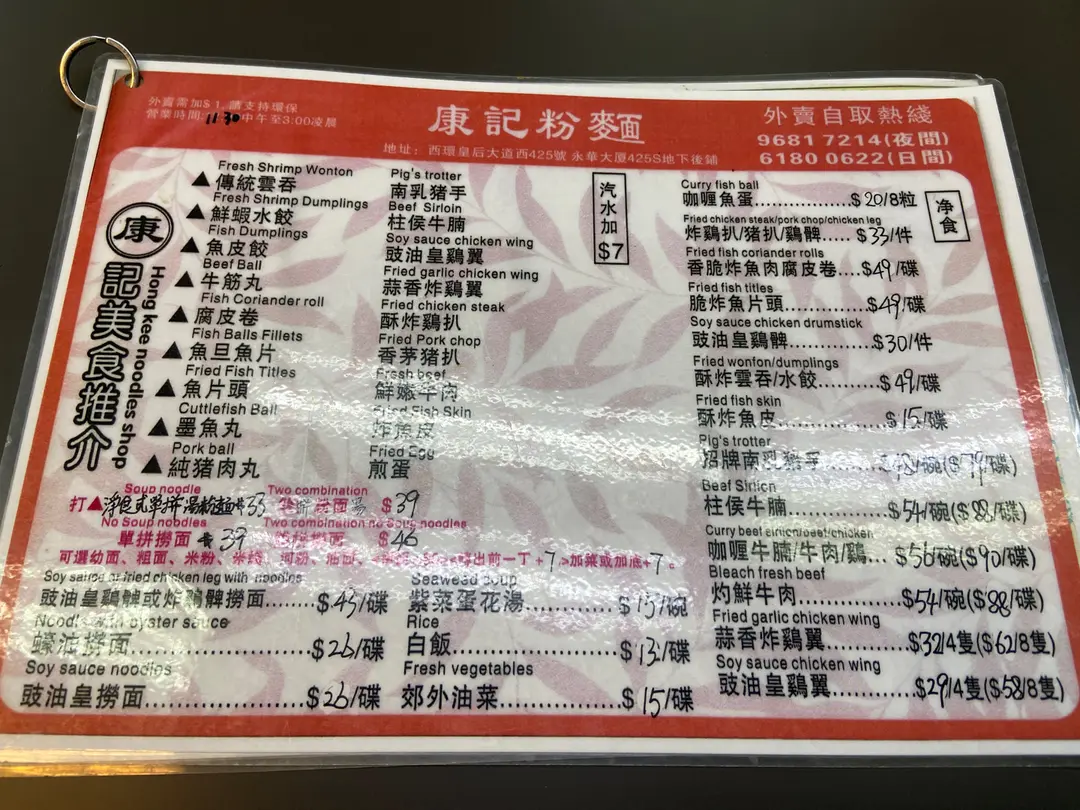 外賣需加$1, 請支持環保
營業時間:11:30中午至3:00凌晨
康記粉麵
地址: 西環皇后大道西425號 永華大厦425S地下後鋪
外賣自取熱綫
9681 7214(夜間)
6180 0622(日間)
康
記美食推介
Hong kee noodles shop
Fresh Shrimp Wonton
▲傳統雲吞
Fresh Shrimp Dumplings
▲鮮蝦水餃
Fish Dumplings
▲魚皮餃
Beef Ball
▲牛筋丸
Fish Coriander roll
▲腐皮卷
Fish Balls Fillets
▲魚旦魚片
Fried Fish Titles
▲魚片頭
Cuttlefish Ball
▲墨魚丸
Pork ball
▲純猪肉丸
Pig's trotter
南乳猪手
Beef Sirloin
柱侯牛腩
Soy sauce chicken wing
豉油皇鷄翼
Fried garlic chicken wing
蒜香炸鷄翼
Fried chicken steak
酥炸鷄扒
Fried Pork chop
香茅猪扒
Fresh beef
鮮嫩牛肉
Fried Fish Skin
炸魚皮
Fried Egg
煎蛋
汽水加$7
Soup noodle
打▲淨食或單拼湯粉麵 33
Two combination
$39
No Soup nobdles
單拼撈面 39
Two combination no Soup noodles
撈面 $46
可選幼面、粗面、米粉、米綫、河粉、油面、出前一丁+7,加菜或加底+7。
Soy sauce or fried chicken leg with noodles
豉油皇鷄髀或炸鷄髀撈面.......$45/碟
Noodles with oyster sauce
蠔油撈面....................$26/碟
Soy sauce noodles
豉油皇撈面....................$26/碟
Seaweed soup
紫菜蛋花湯............$15/碗
Rice
白飯......................$13/碟
Fresh vegetables
郊外油菜................$15/碟
净食
Curry fish ball
咖喱魚蛋................$20/8粒
Fried chicken steak/pork chop/chicken leg
炸鷄扒/猪扒/鷄髀..... $33/件
Fried fish coriander rolls
香脆炸魚肉腐皮卷....$49/碟
Fried fish titles
脆炸魚片頭..............$49/碟
Soy sauce chicken drumstick
豉油皇鷄髀..............$30/件
Fried wonfon/dumplings
酥炸雲吞/水餃..........$49/碟
Fried fish skin
酥炸魚皮................$15/碟
Pig's trotter
招牌南乳猪手..........$48/碗($79/碟)
Beef Sirlion
柱侯牛腩................$54/碗($88/碟)
Curry beef sirlion/beef/chicken
咖喱牛腩/牛肉/鷄... $56/碗($90/碟)
Bleach fresh beef
灼鮮牛肉................$54/碗($88/碟)
Fried garlic chicken wing
蒜香炸鷄翼............$32/4隻($62/8隻)
Soy sauce chicken wing
豉油皇鷄翼............$29/4隻($58/8隻)